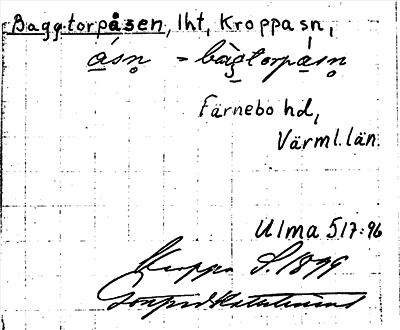 Baggtorpåsen, lht, Kroppa sn,
åsn̥ - bàg̲torpåsn̥
Färnebo hd,
Värml. län.
Ulma 517:96
Kroppa S. 1899